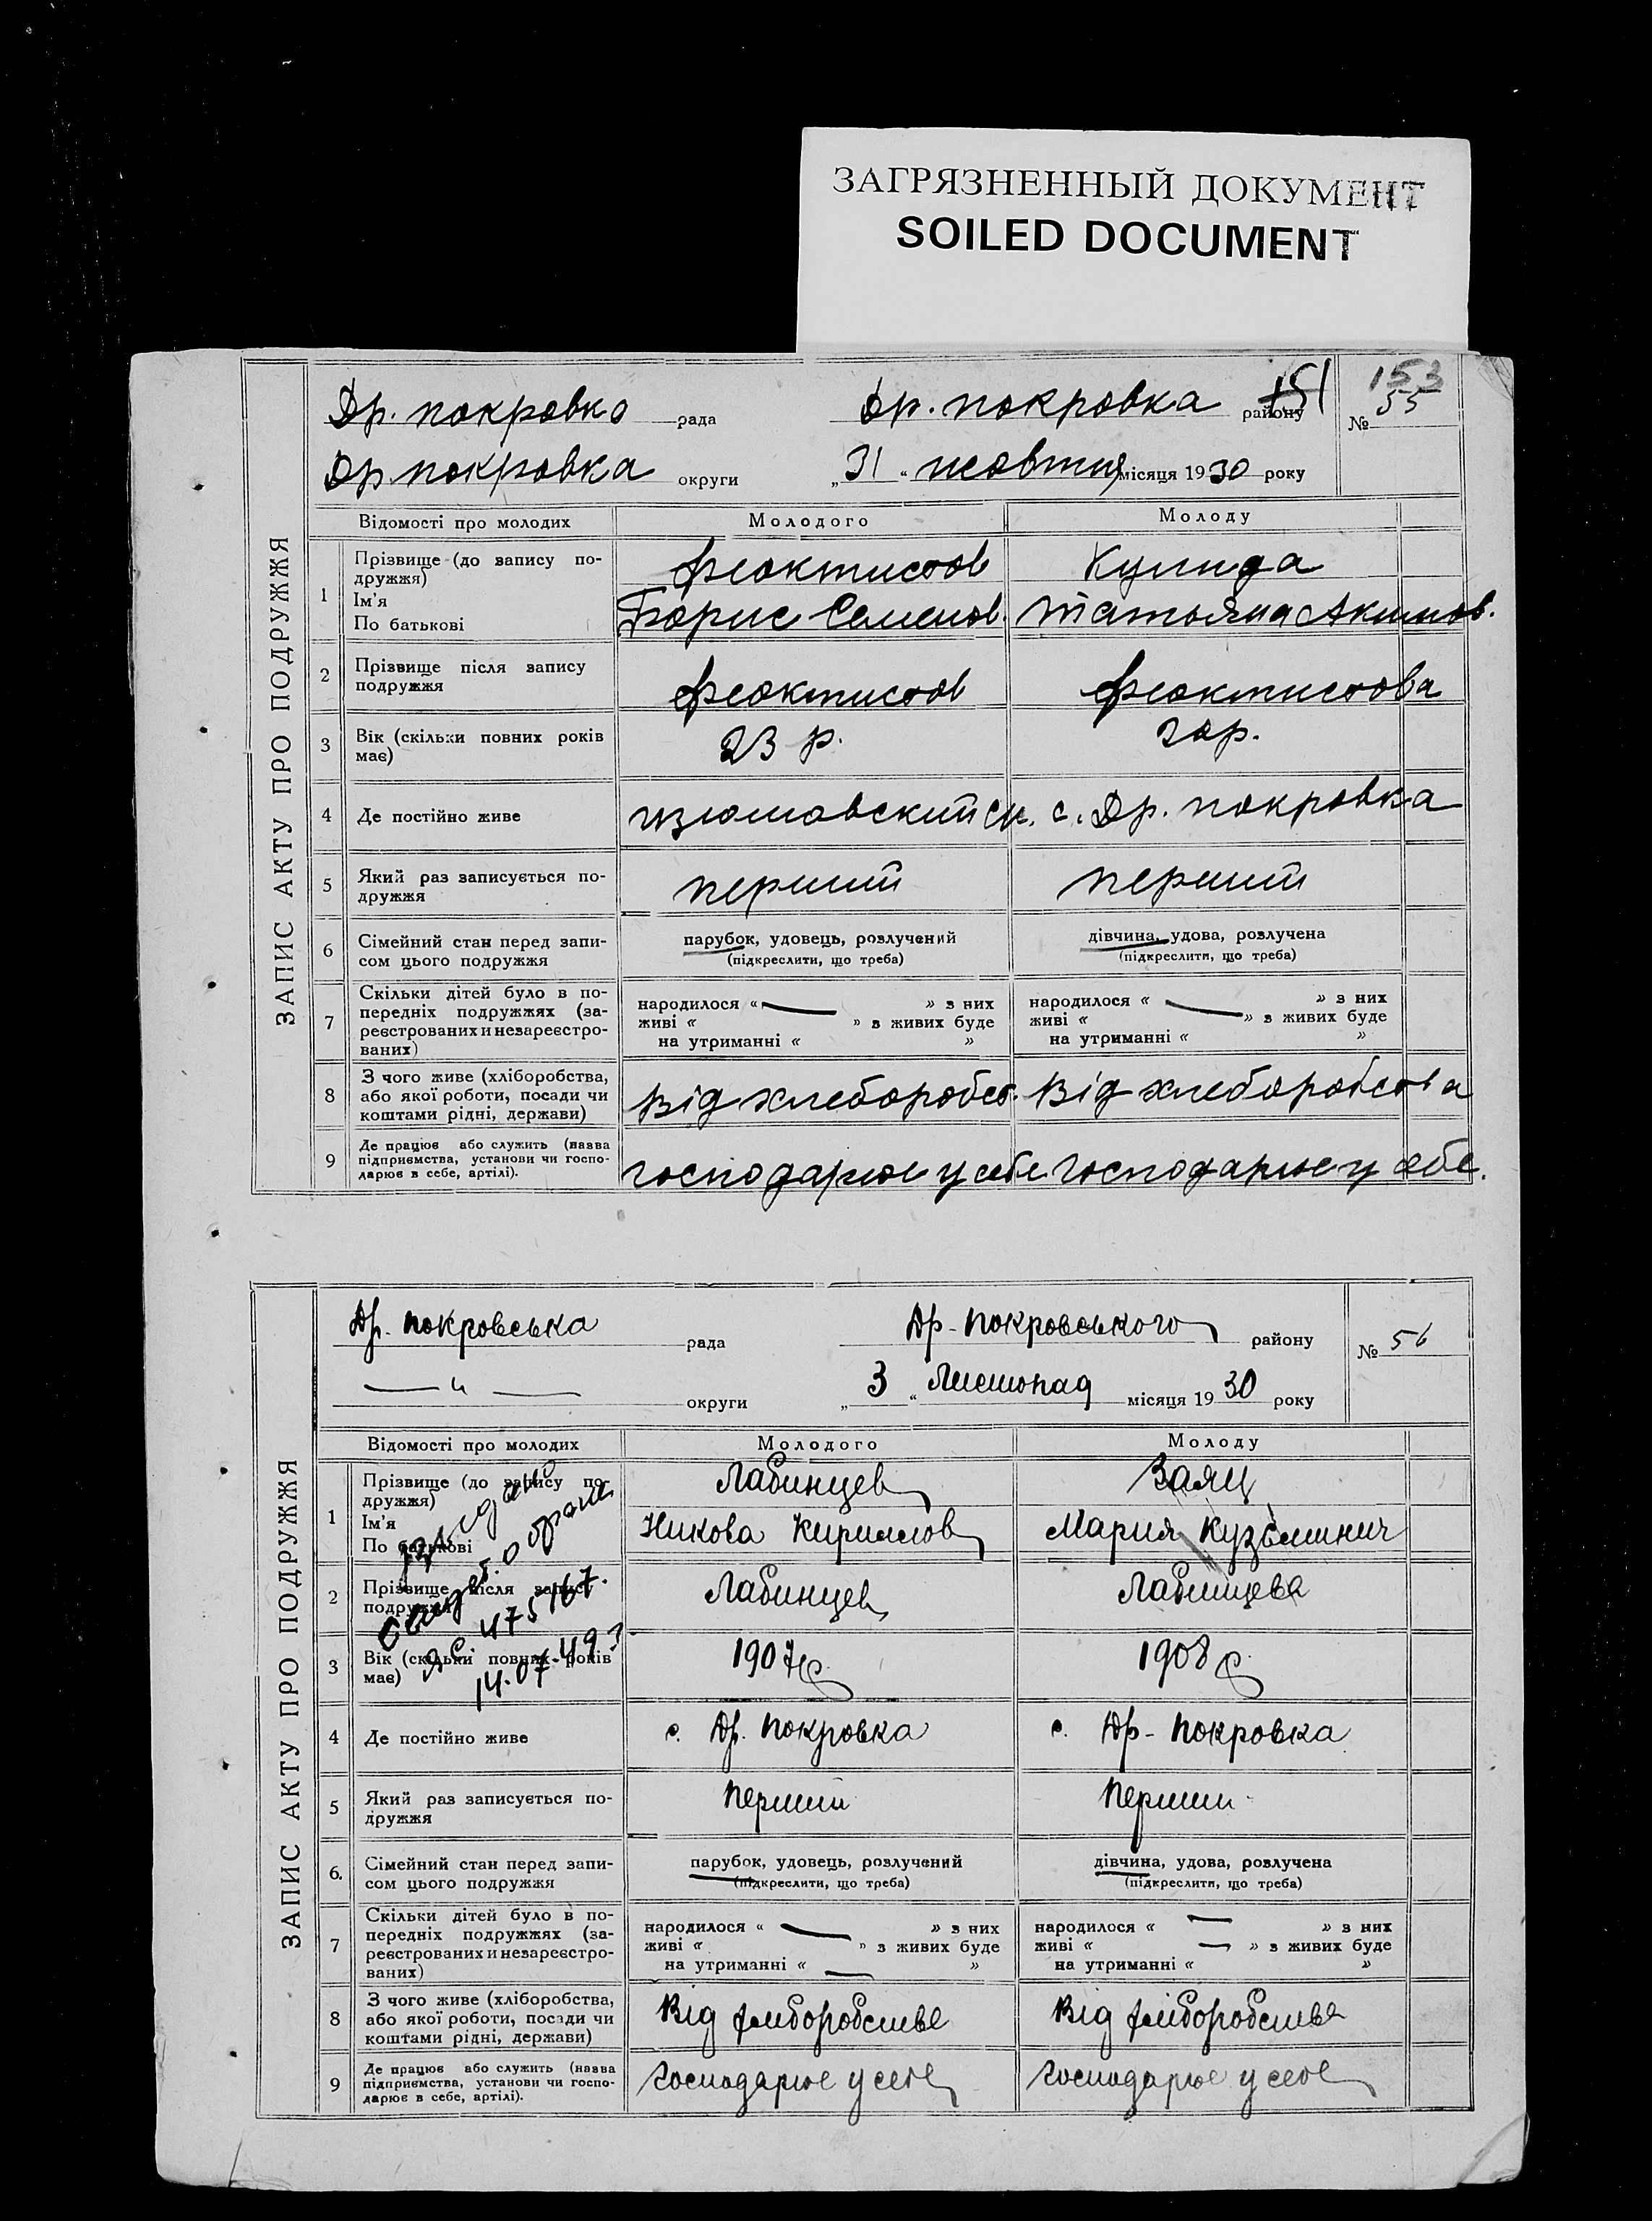 ЗАГРЯЗНЕННЫЙ ДОКУМЕНТ
SOILED DOCUMENT
ЗАПИС АКТУ ПРО ПОДРУЖЖЯ
Др. покровка рада Др. покровка району 151 153
№ 55
Др покровка округи „31“ жовтня місяця 1930 року
Відомості про молодих Молодого Молоду
1 Прізвище (до запису по-
дружжя) Феоктистов Кулида
Ім'я
По батькові Борис Семенов. Татьяна Акимов.
2 Прізвище після запису
подружжя Феоктистов Феоктистова
3 Вік (скільки повних років
має) 23 р. 20р.
4 Де постійно живе с. Др. покровка
5 Який раз записується по-
дружжя перший перший
6 Сімейний стан перед запи-
сом цього подружжя парубок, удовець, розлучений дівчина, удова, розлучена
(підкреслити, що треба) (підкреслити, що треба)
7 Скільки дітей було в по-
передніх подружжях (за-
реєстрованих и незареєстро-
ваних)
народилося « » з них народилося « » з них
живі « » з живих буде живі « » з живих буде
на утриманні « » на утриманні « »
8 З чого живе (хліборобства,
або якої роботи, посади чи
коштами рідні, держави) Від хлеборобст. Від хлеборобства
9 Де працює або служить (назва
підприємства, установи чи госпо-
дарює в себе, артілі). господарює у себе господарює у себе.
ЗАПИС АКТУ ПРО ПОДРУЖЖЯ
Др. покровська рада Др-покровського району № 56
— „ — округи „3“ Листопад місяця 1930 року
Відомості про молодих Молодого Молоду
1 Прізвище (до запису по-
дружжя) Лабинцев Заяц
Ім'я
По батькові Никова Кириллов Мария Кузьминич
2 Прізвище після запису
подружжя Лабинцев Лабинцева
3 Вік (скільки повних років
має) 1907р 1908р
475167.
14.07.49
4 Де постійно живе с. Др. покровка с. Др-покровка
5 Який раз записується по-
дружжя перший перший
6. Сімейний стан перед запи-
сом цього подружжя парубок, удовець, розлучений дівчина, удова, розлучена
(підкреслити, що треба) (підкреслити, що треба)
7 Скільки дітей було в по-
передніх подружжях (за-
реєстрованих и незареєстро-
ваних)
народилося « » з них народилося « » з них
живі « » з живих буде живі « » з живих буде
на утриманні « » на утриманні « »
8 З чого живе (хліборобства,
або якої роботи, посади чи
коштами рідні, держави) Від хліборобства Від хліборобства
9 Де працює або служить (назва
підприємства, установи чи госпо-
дарює в себе, артілі). господарює у себе господарює у себе